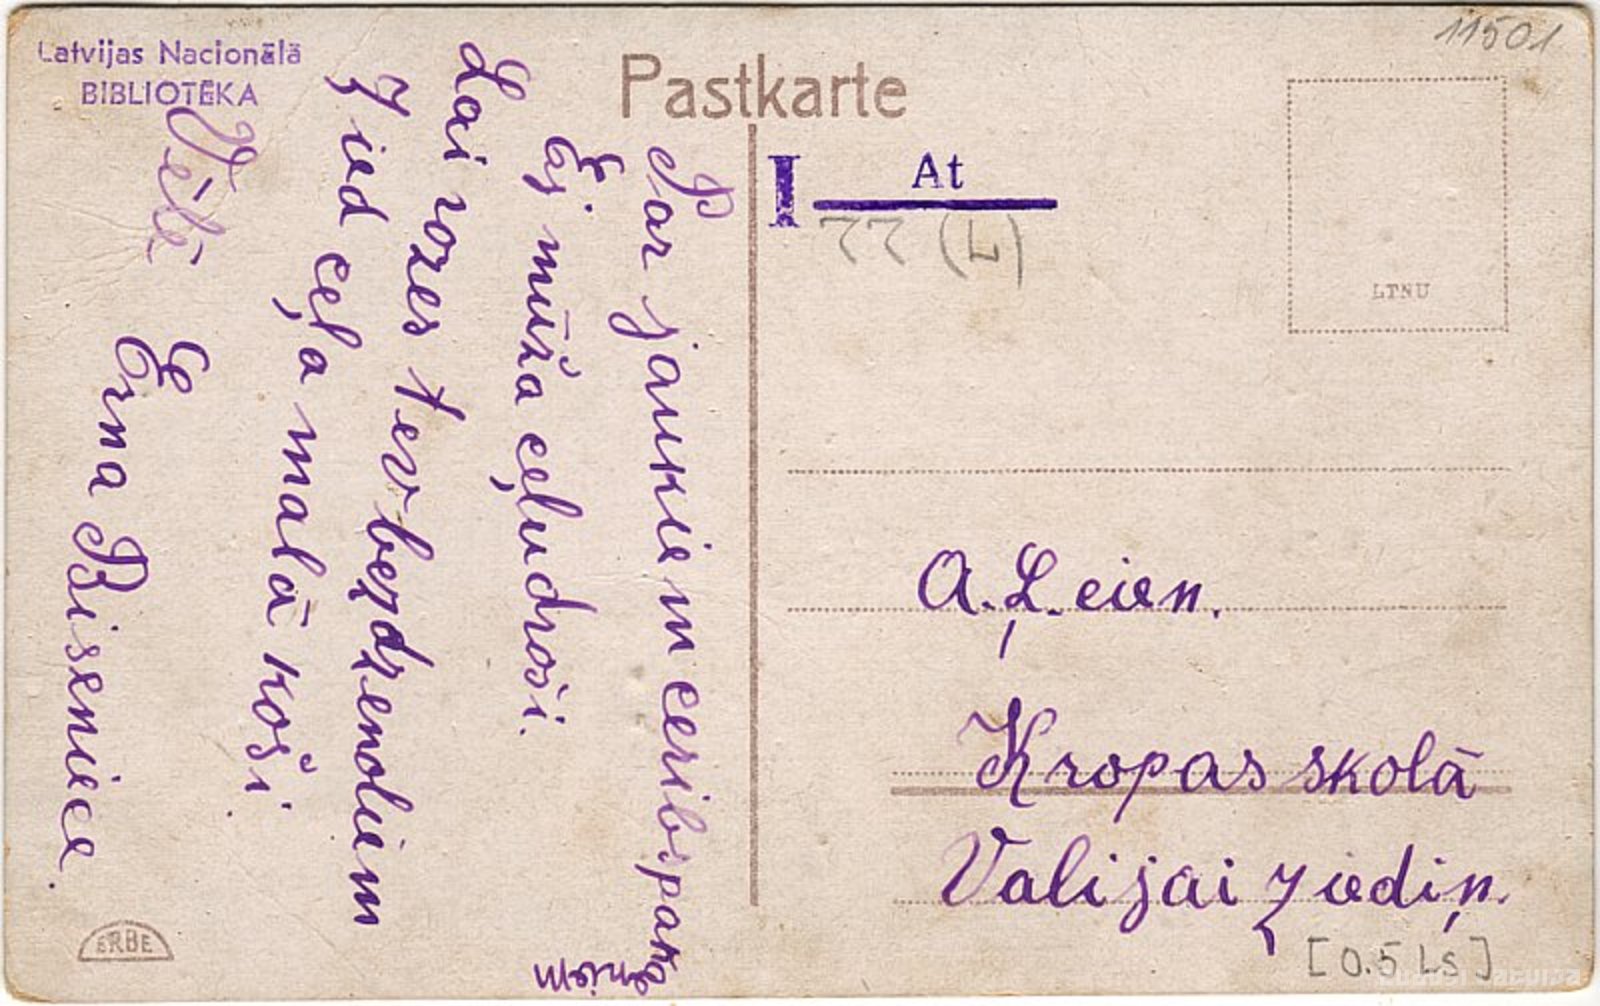 Latvijas Nacionālā
BIBLIOTĒKA
Pastkarte
11501
I At
22 (L)
LTNU
Par jaukiem ceribi pakā
eniem
Ej mūža ceļu droši.
Lai rozes tev bezdzenoliem
Zied ceļa malā koši.
Vēlē
Erna Biseniece.
A. Ļ. eien.
Kropas skolā
Valijai Ziediņ.
[0.5 Ls]
ERBE